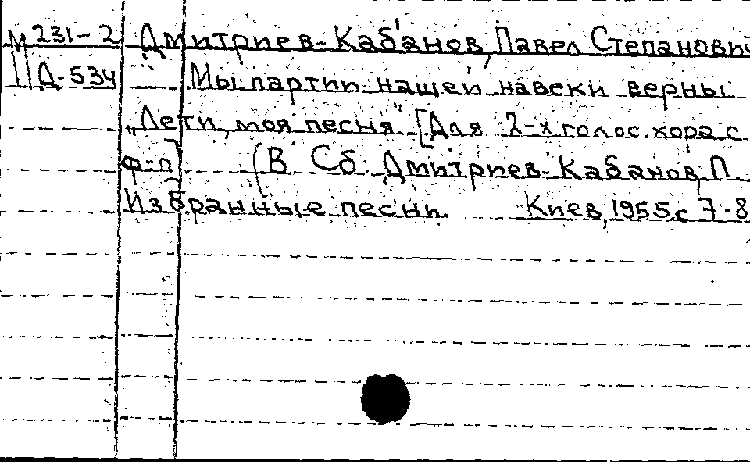 М 231-2 Дмитриев-Кабанов, Павел Степанович
Д-534 Мы партии нашей навеки верны
„Лети, моя песня" [Для 2-х голос. хора с
ф-п] (В Сб. Дмитриев Кабанов, П
Избранные песни. Киев, 1955, с 7-8